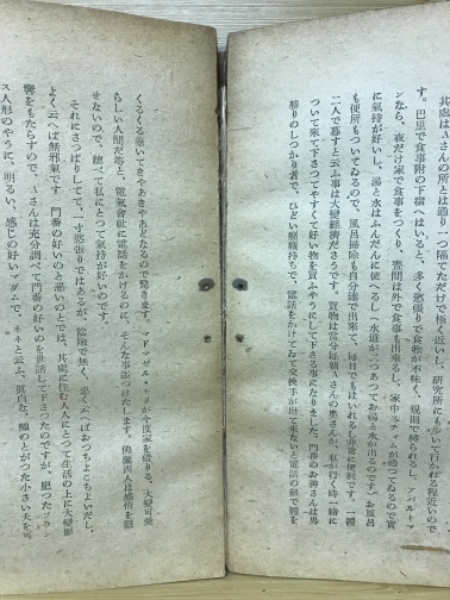 其處はAさんの所とは通り一つ隔てただけで極く近いし、研究所にも歩いて行かれる程近いので
す。巴里で食事附の下宿へはいると、多く慾張りで食物が不味く、規則で縛られるし、アパルトマ
ンなら、夜だけ家で食事をつくり、晝間は外で食事も出來るし、家中スティムが通つてゐるので實
に氣持が好いし、湯と水はふんだんに使へるし(水道が二つあつてお湯と水が出るのです)お風呂
も便所もついてゐるので、風呂掃除も自分達で出來て、毎日でもはいれると非常に便利です。一體
二人で暮すと云ふ事は大變經濟ださうです。買物は當分毎朝Aさんの奥さんが、私が行く時一緒に
ついて來て下さつてやすくて好い物を買ふやうにして下さる事になりました。門番のお神さんは男
勝りのしつかり者で、ひどい癇癪持ちで、電話をかけてゐて交換手が出て來ないと電話の紐で體を
くるくる卷いてきやあきやあどなるので驚きます。マドマゼル・
らしい人間だ等と、電氣會社に電話をかけるのに、そんな事迄つけたします。佛蘭西人は感情を隱
せないので、總べて私にとつて氣持が好いのです。
それにさつぱりしてて、一寸慾張りではあるが、陰險で無く、惡く云へばおつちよこちよいだし、
よく云へば無邪氣です 門番の好いのと惡いのとでは、其處に住む人にとつて生活の上に大變影
響をもたらすので、Aさんは充分調べて門番の好いのを世話して下さつたのですが、肥つたフラン
ス人形のやうに、明るい、感じの好いマダムで、ネネと云ふ、眞白な、顏のとがつた小さい犬を可